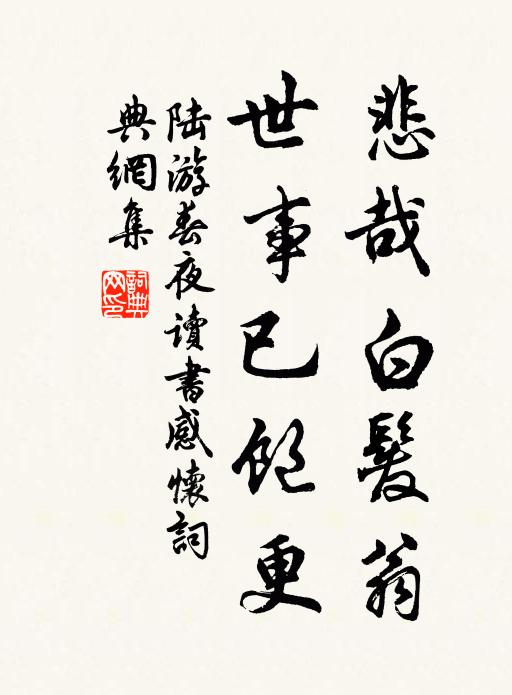 悲哉白髮翁
世事已飽更
陆游春夜讀書感懷詞
典網集
詞典網印